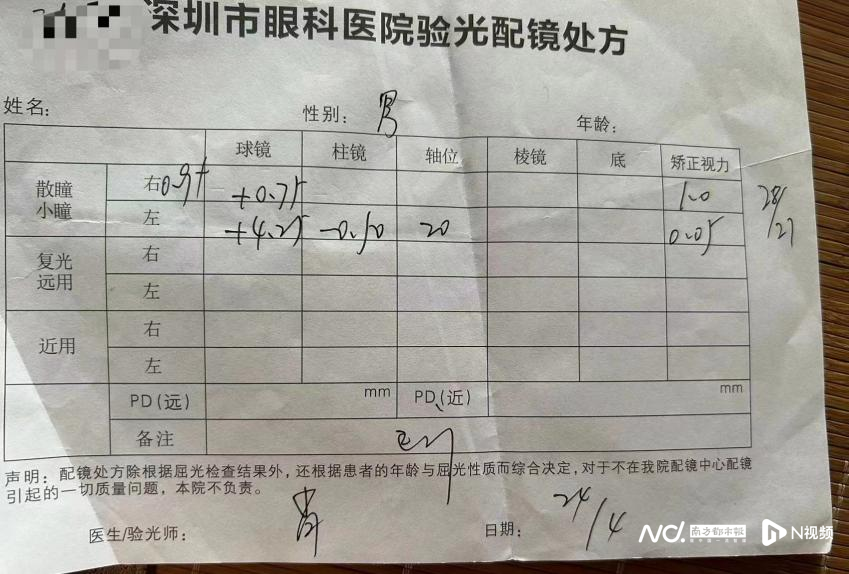 深圳市眼科医院验光配镜处方
姓名: 性别: 男 年龄:
球镜 柱镜 轴位 棱镜 底 矫正视力
散瞳 小瞳 右 +0.75 1.0
左 +4.25 -0.50 20 0.05
28/27
复光 远用 右
左
近用 右
左
PD(远) mm PD(近) mm
备注
声明: 配镜处方除根据屈光检查结果外,还根据患者的年龄与屈光性质而综合决定,对于不在我院配镜中心配镜
引起的一切质量问题,本院不负责。
医生/验光师: 日期: 24/4
N视频
南方都市报